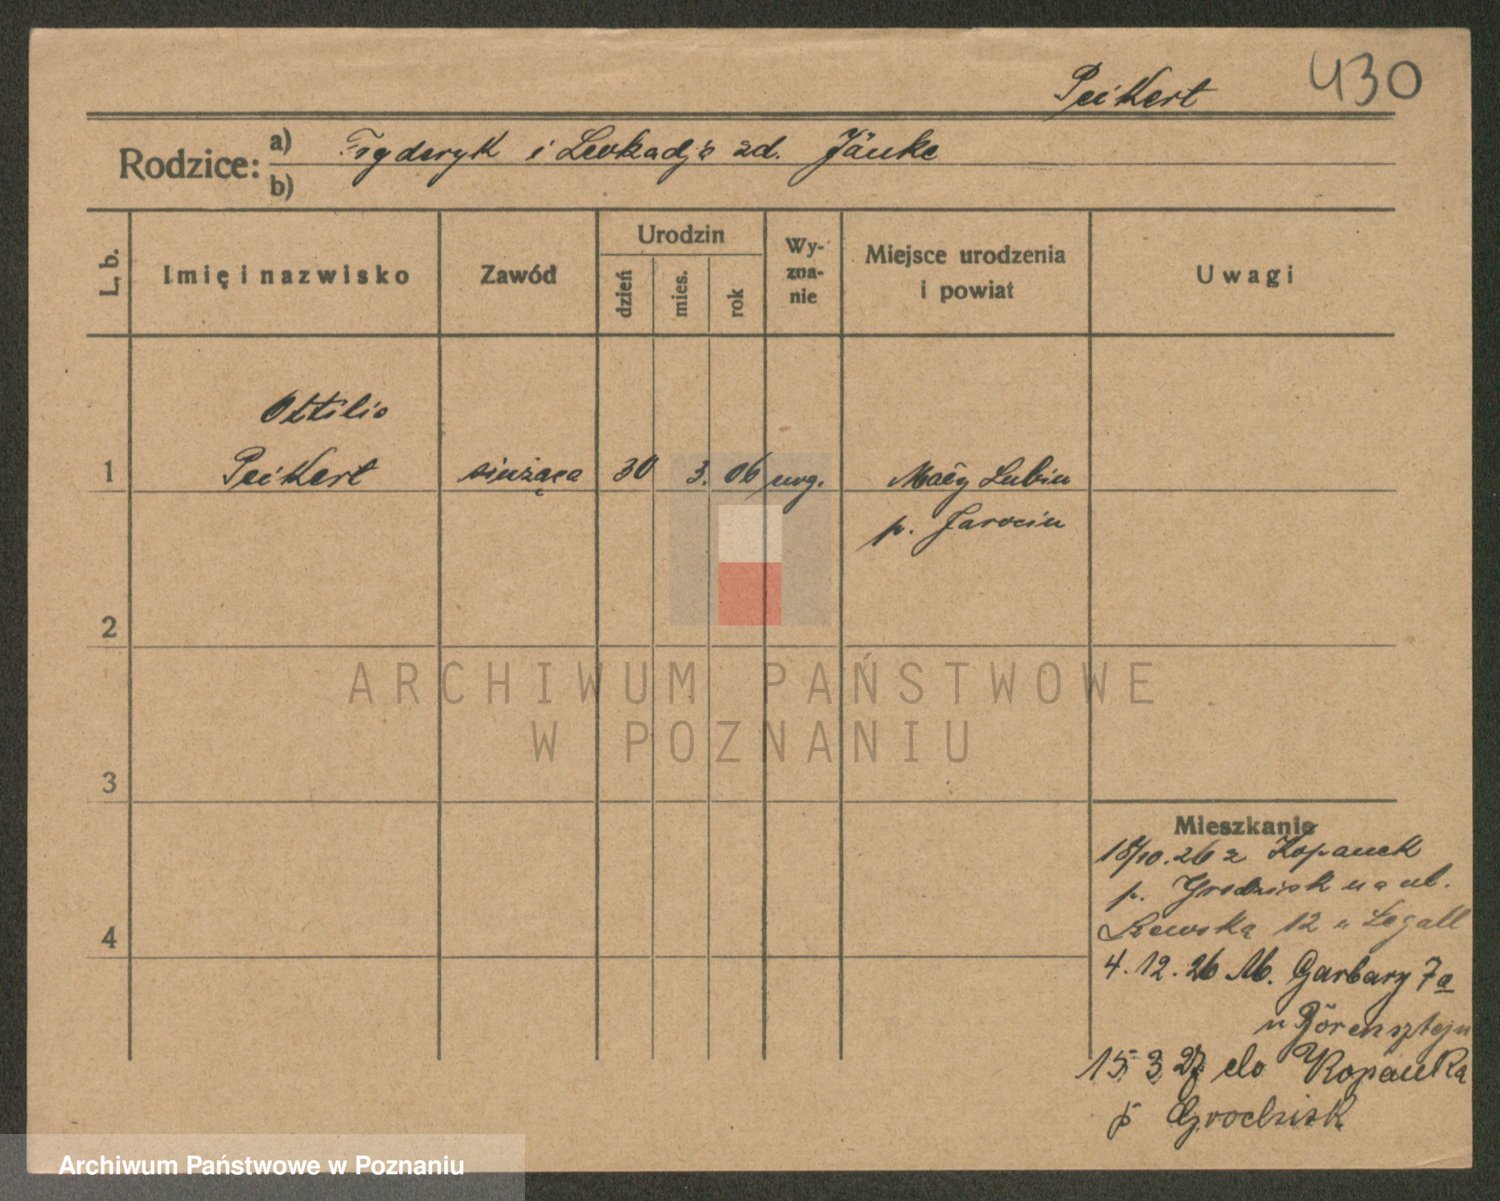 Peikert 430
Rodzice: a) Fryderyk i Leokadja zd. Jänke
b)
L. b. Imię i nazwisko Zawód Urodzin dzień mies. rok Wy-zna-nie Miejsce urodzenia i powiat Uwagi
Ottilie
1 Peikert służąca 30 3. 06 ewg. Mały Lubin
p. Jarocin
2
3
4
Mieszkanie
18/10.26 z Kopanek
p. Grodzisk na ul.
Szewską 12 u Legall
4.12.26 M. Garbary 7a
u Börensztejn
15.3.27 do Kopanka
p Grodzisk
ARCHIWUM PAŃSTWOWE
W POZNANIU
Archiwum Państwowe w Poznaniu